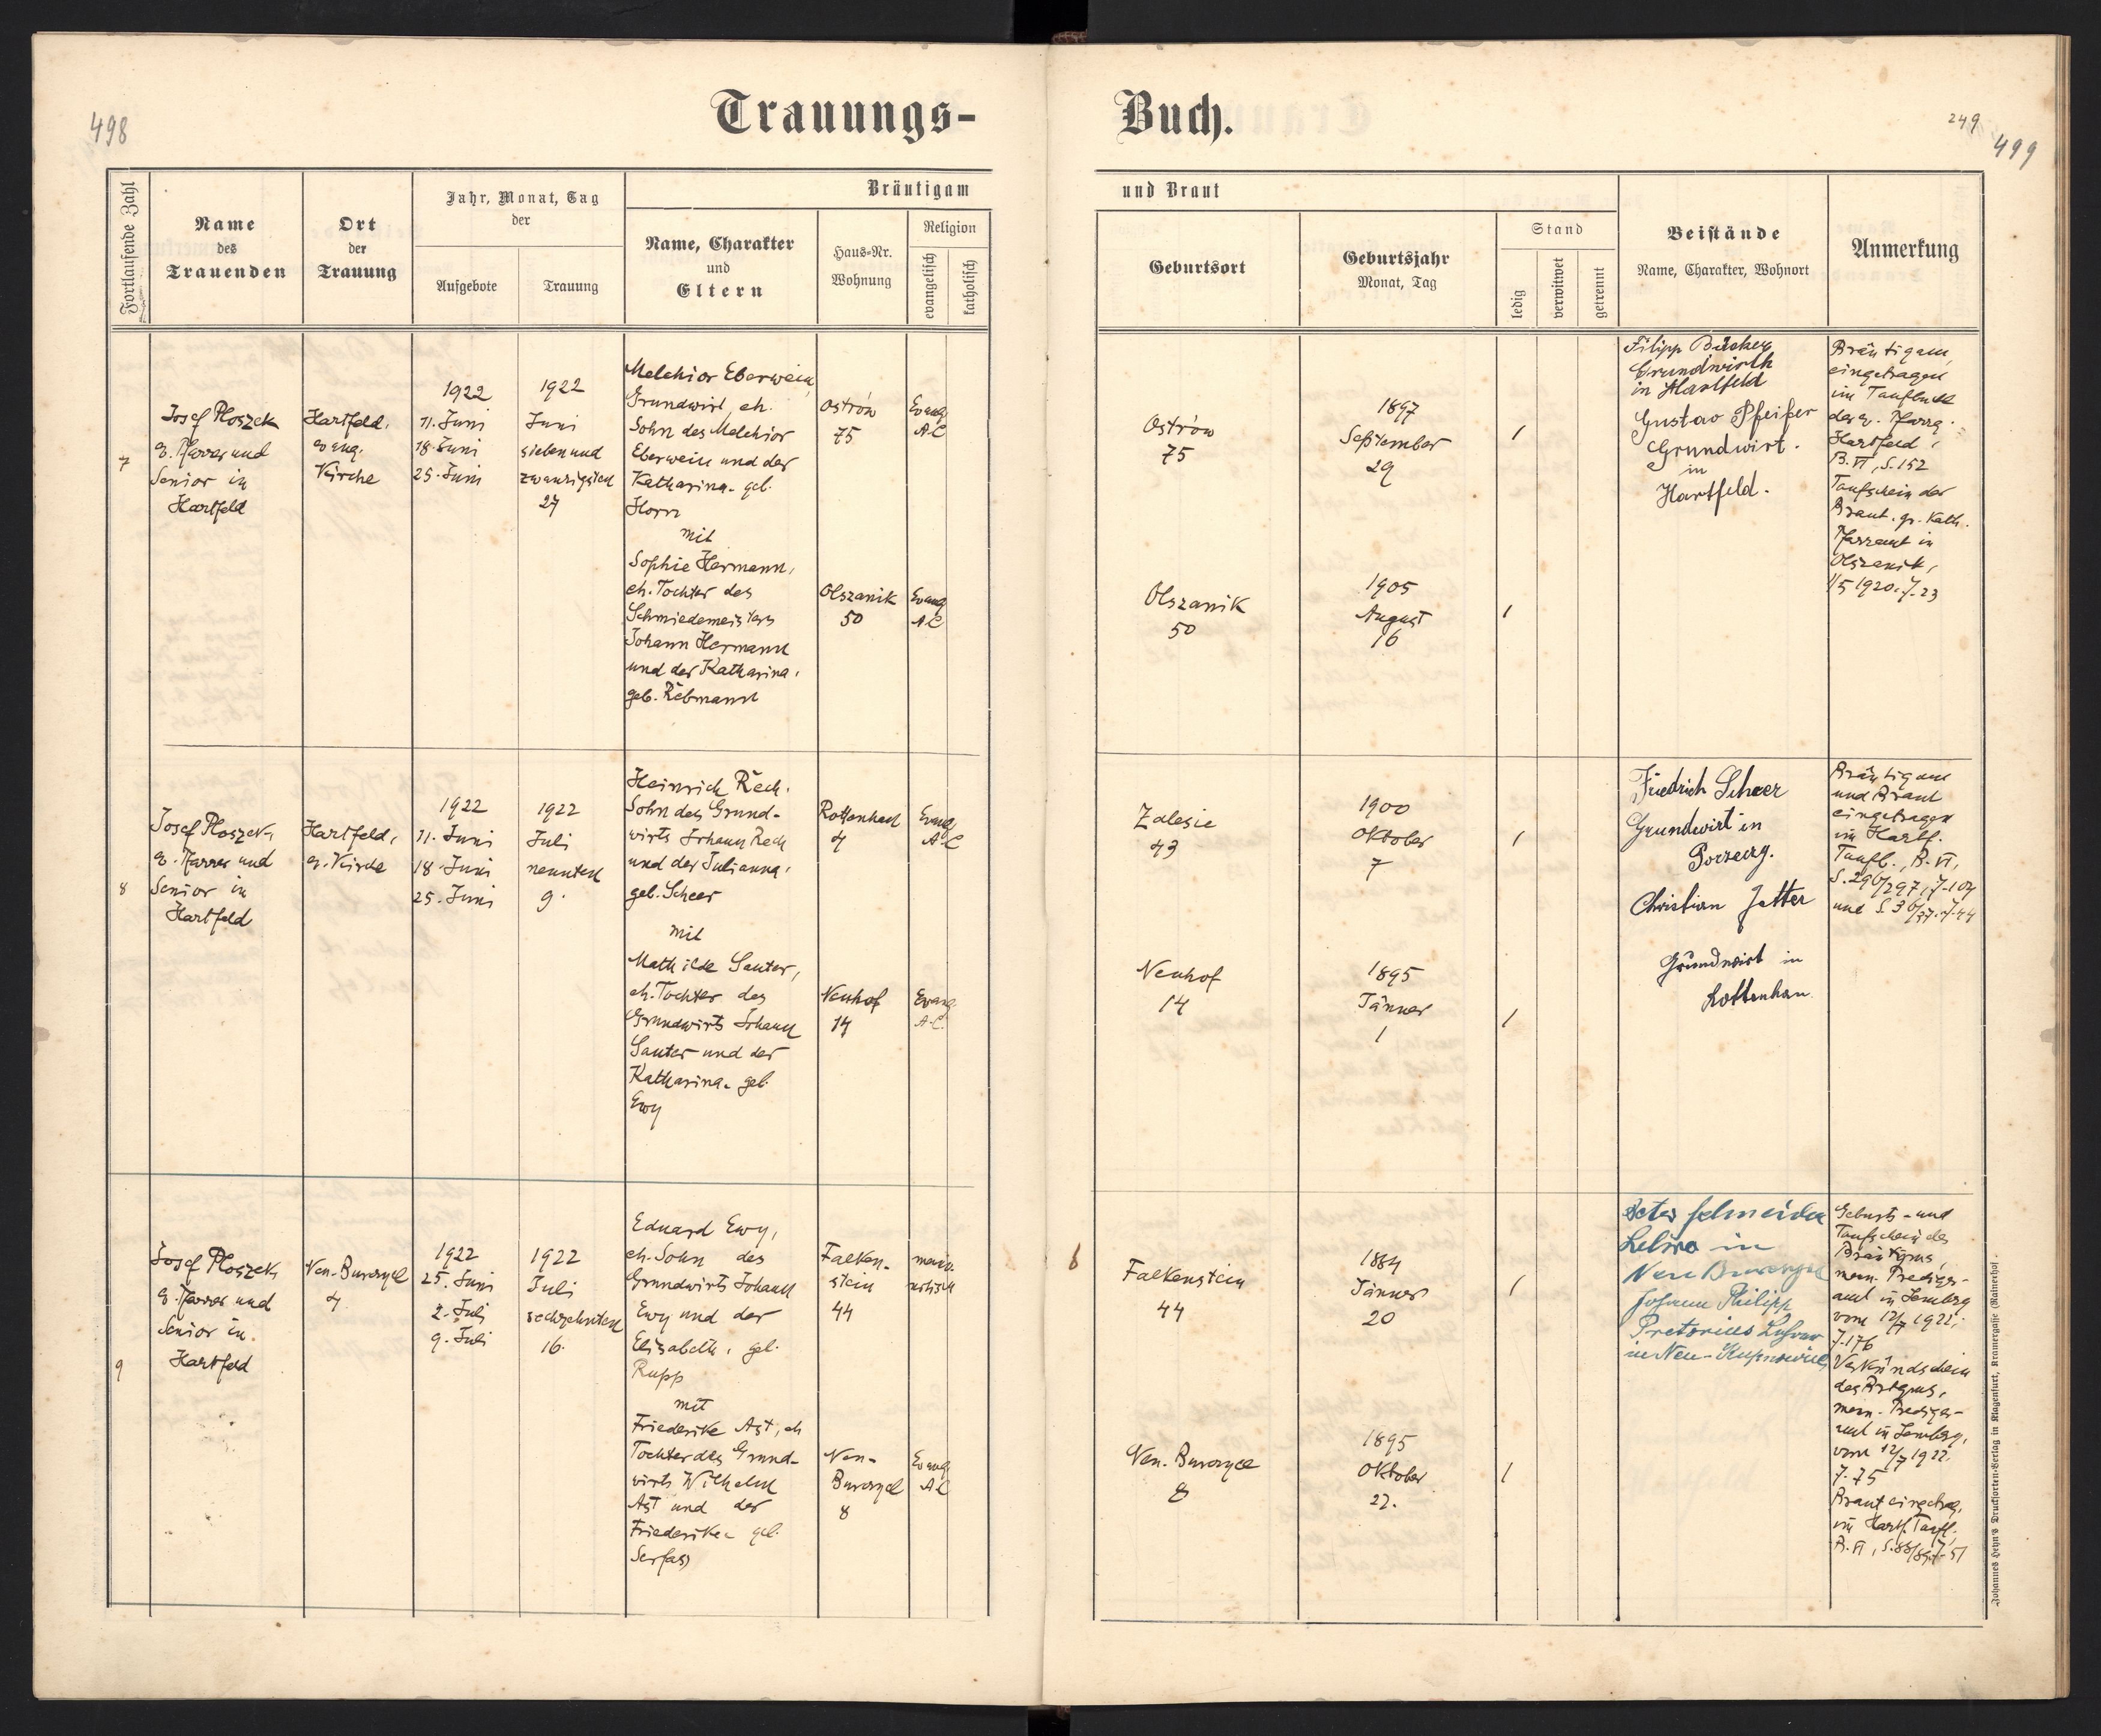 498
Trauungs-
Buch.
249
499
Fortlaufende Zahl
Name
des
Trauenden
Ort
der
Trauung
Jahr, Monat, Tag
der
Aufgebote
Trauung
Bräutigam
Name, Charakter
und
Eltern
Haus-Nr.
Wohnung
Religion
evangelisch
katholisch
und Braut
Geburtsort
Geburtsjahr
Monat, Tag
Stand
ledig
verwitwet
getrennt
Beistände
Name, Charakter, Wohnort
Anmerkung
7
Josef Ploszek
e. Pfarrer und
Senior in
Hartfeld
Hartfeld,
evang.
Kirche
1922
11. Juni
18. Juni
25. Juni
1922
Juni
sieben und
zwanzigsten
27
Melchior Eberwein,
Grundwirt, eh.
Sohn des Melchior
Eberwein und der
Katharina, geb.
Horn
mit
Sophie Hermann,
eh. Tochter des
Schmiedemeisters
Johann Hermann
und der Katharina,
geb. Rebmann
Ostrów
75
Evang
A.C
Olszanik
50
Evang
A.C
Ostrów
75
1897
September
29
/
Olszanik
50
1905
August
16
/
Filipp Bücker
Grundwirth
in Hartfeld
Gustav Pfeifer
Grundwirt.
in
Hartfeld.
Bräutigam
eingetragen
im Taufbuch
der e. Pfarrg.
Hartfeld,
B. VI, S. 152
Taufschein der
Braut. gr. Kath.
Pfarramt in
Olszanik,
1/5 1920. Z. 23
8
Josef Ploszek,
e. Pfarrer und
Senior in
Hartfeld
Hartfeld,
e. Kirche
1922
11. Juni
18. Juni
25. Juni
1922
Juli
neunten
9.
Heinrich Rech,
Sohn des Grund-
wirts Johann Rech
und der Julianna,
geb. Scheer
mit
Mathilde Sauter,
eh. Tochter des
Grundwirts Johann
Sauter und der
Katharina, geb.
Ewy
Rottenhan
4
Evang
A.C
Neuhof
14
Evang
A.C.
Zalesie
43
1900
Oktober
7
/
Neuhof
14
1895
Jänner
1
/
Friedrich Scheer
Grundwirt in
Porzecz.
Christian Jetter
Grundwirt in
Rottenhan.
Bräutigam
und Braut
eingetragen
im Hartf.
Taufb., B. VI,
S. 296/297, Z. 104
und S. 36/37. Z. 44
9
Josef Ploszek,
e. Pfarrer und
Senior in
Hartfeld
Neu-Burczyce
4
1922
25. Juni
2. Juli
9. Juli
1922
Juli
sechzehnten
16.
Eduard Ewy,
eh. Sohn des
Grundwirts Johann
Ewy und der
Elisabeth, geb.
Rupp
mit
Friederike Ast, eh
Tochter des Grund-
wirts Wilhelm
Ast und der
Friederike geb.
Serfas
Falken-
stein
44
Neu-
Burczyce
8
Evang
A C
Falkenstein
44
1884
Jänner
20
/
Neu-Burczyce
8
1895
Oktober
27.
/
Peter Schneider
Lehrer in
Neu Burczyce
Johann Philipp
Pretorius Lehrer
in Neu-Kupnowice
Geburts- und
Taufschein des
Bräutigams,
menn. Prediger-
amt in Lemberg
vom 12/7 1922,
Z. 176
Verkündschein
des Brtgms,
menn. Prediger-
amt in Lemberg,
vom 12/7 1922.
Z. 75
Braut eingetrag.
im Hartf. Taufb.
B. VI, S. 88/89, Z. 51
Johannes Heyn's Drucksorten-Verlag in Klagenfurt, Kramergasse (Rainerhof).